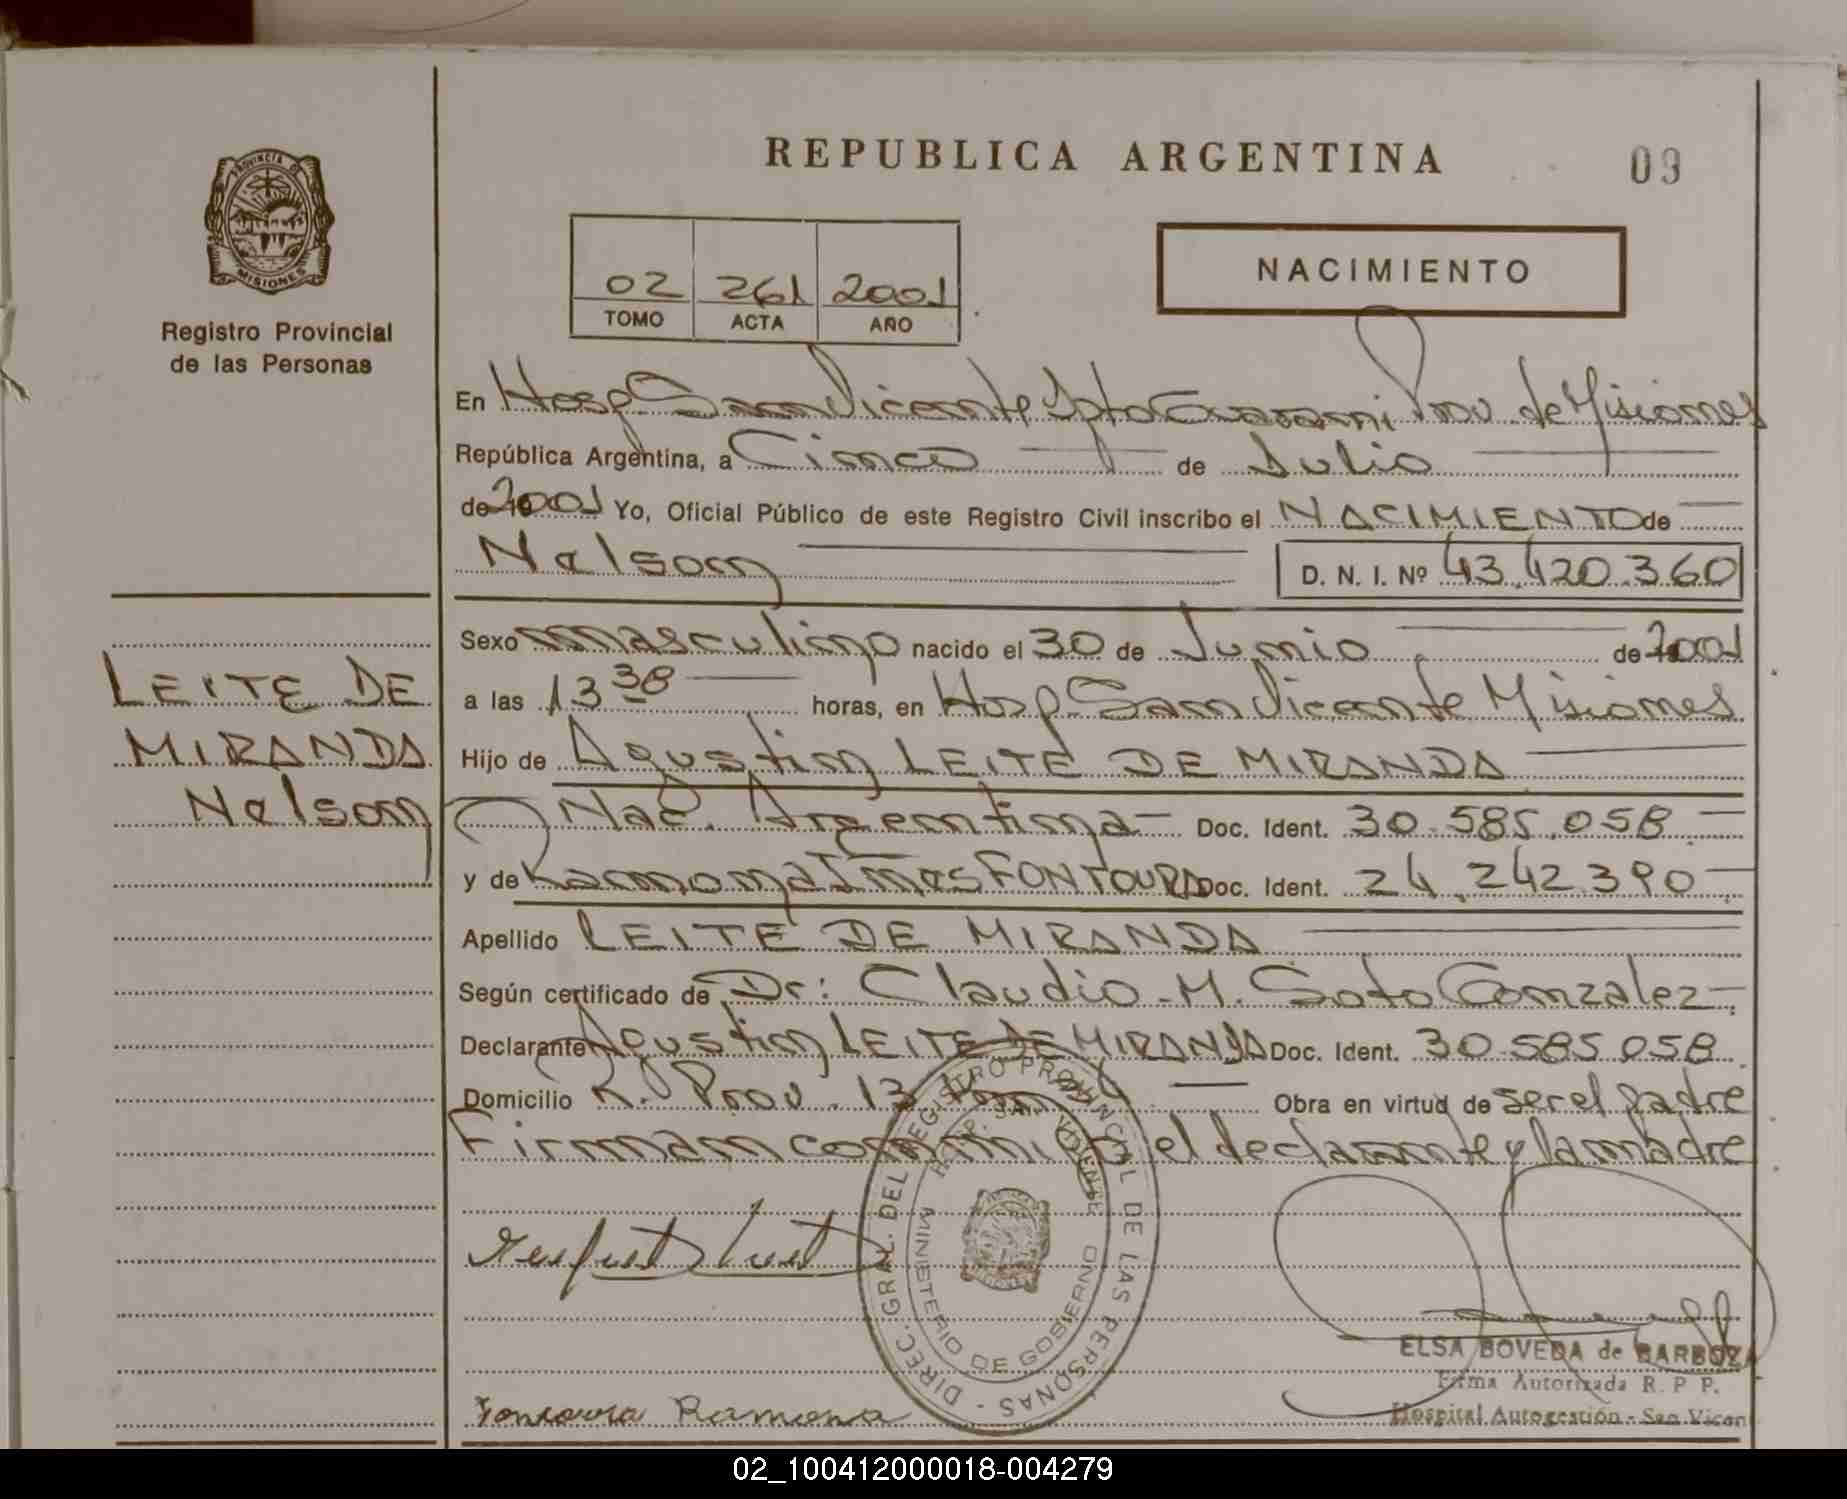 REPUBLICA ARGENTINA
09
PROVINCIA DE
MISIONES
Registro Provincial
de las Personas
02 261 2001
TOMO ACTA AÑO
NACIMIENTO
En Hosp San Vicente Dpto Guarani Prov. de Misiones
República Argentina, a Cinco de Julio
de 2001 Yo, Oficial Público de este Registro Civil inscribo el NACIMIENTO de
Nelson D. N. I. Nº 43.420.360
LEITE DE
MIRANDA
Nelson
Sexo masculino nacido el 30 de Junio de 2001
a las 13 38 horas, en Hosp San Vicente Misiones
Hijo de Agustin LEITE DE MIRANDA
Nac. Argentina Doc. Ident. 30.585.058
y de Ramona Ines FONTOURA Doc. Ident. 24.242.390
Apellido LEITE DE MIRANDA
Según certificado de Dr: Claudio M. Soto Gonzalez
Declarante Agustin LEITE DE MIRANDA Doc. Ident. 30.585.058
Domicilio R. Prov. 13 Obra en virtud de ser el padre
Firman conmigo el declarante y la madre
DIREC. GRAL. DEL REGISTRO PROVINCIAL DE LAS PERSONAS
HOSP. SAN VICENTE
MINISTERIO DE GOBIERNO
ELSA BOVEDA de BARBOZA
Firma Autorizada R. P. P.
Hospital Autogestión - San Vicen
Fontoura Ramona
02_100412000018-004279